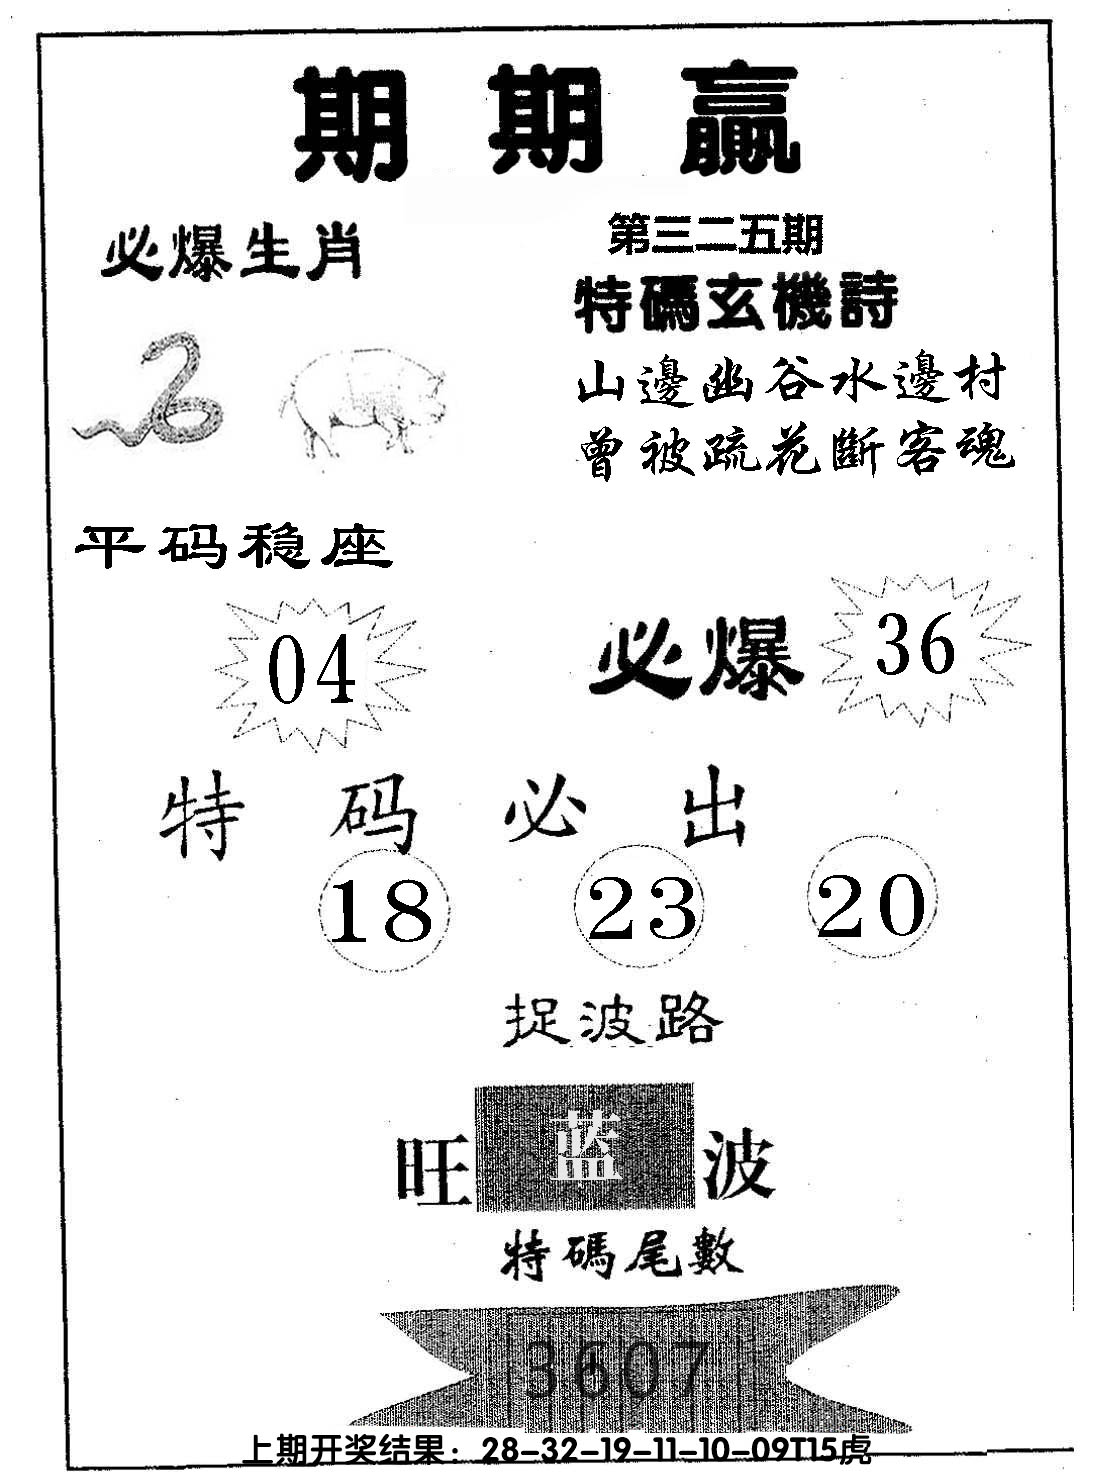 期期赢
必爆生肖
第三二五期
特碼玄機詩
山邊幽谷水邊村
曾被疏花斷客魂
平码稳座
04
必爆
36
特码必出
18 23 20
捉波路
旺蓝波
特碼尾數
3607
上期开奖结果：28-32-19-11-10-09T15虎